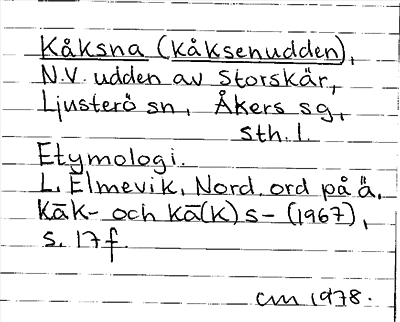 Kåksna (Kåksenudden),
N.V. udden av Storskär,
Ljusterö sn, Åkers sg,
Sth. l.
Etymologi.
L. Elmevik, Nord. ord på ä.
Kāk- och kā(k)s- (1967),
s. 17f.
cm 1978.